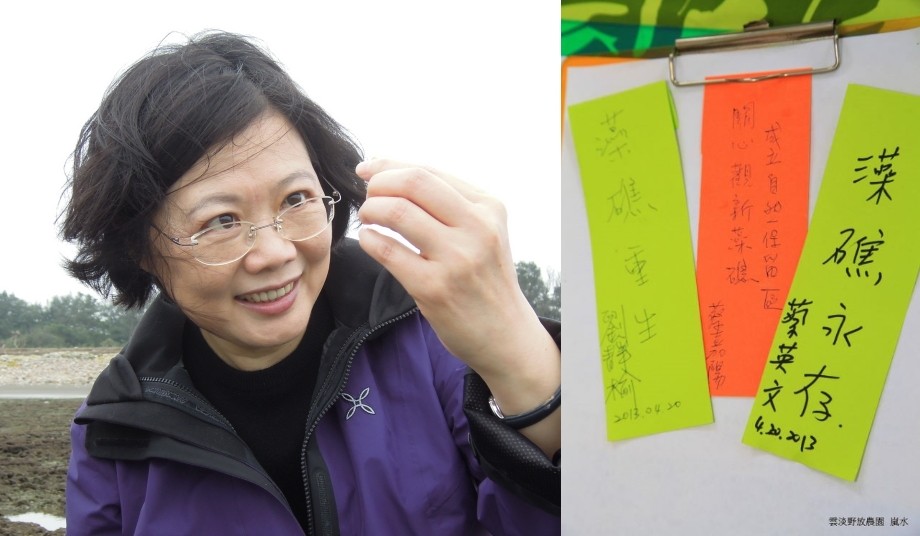 藻礁重生
劉靜榆
2013.04.20
成立自然保留區
關心觀新藻礁
藻礁永存.
蔡英文
4.20.2013
雲淡野放農園 嵐水